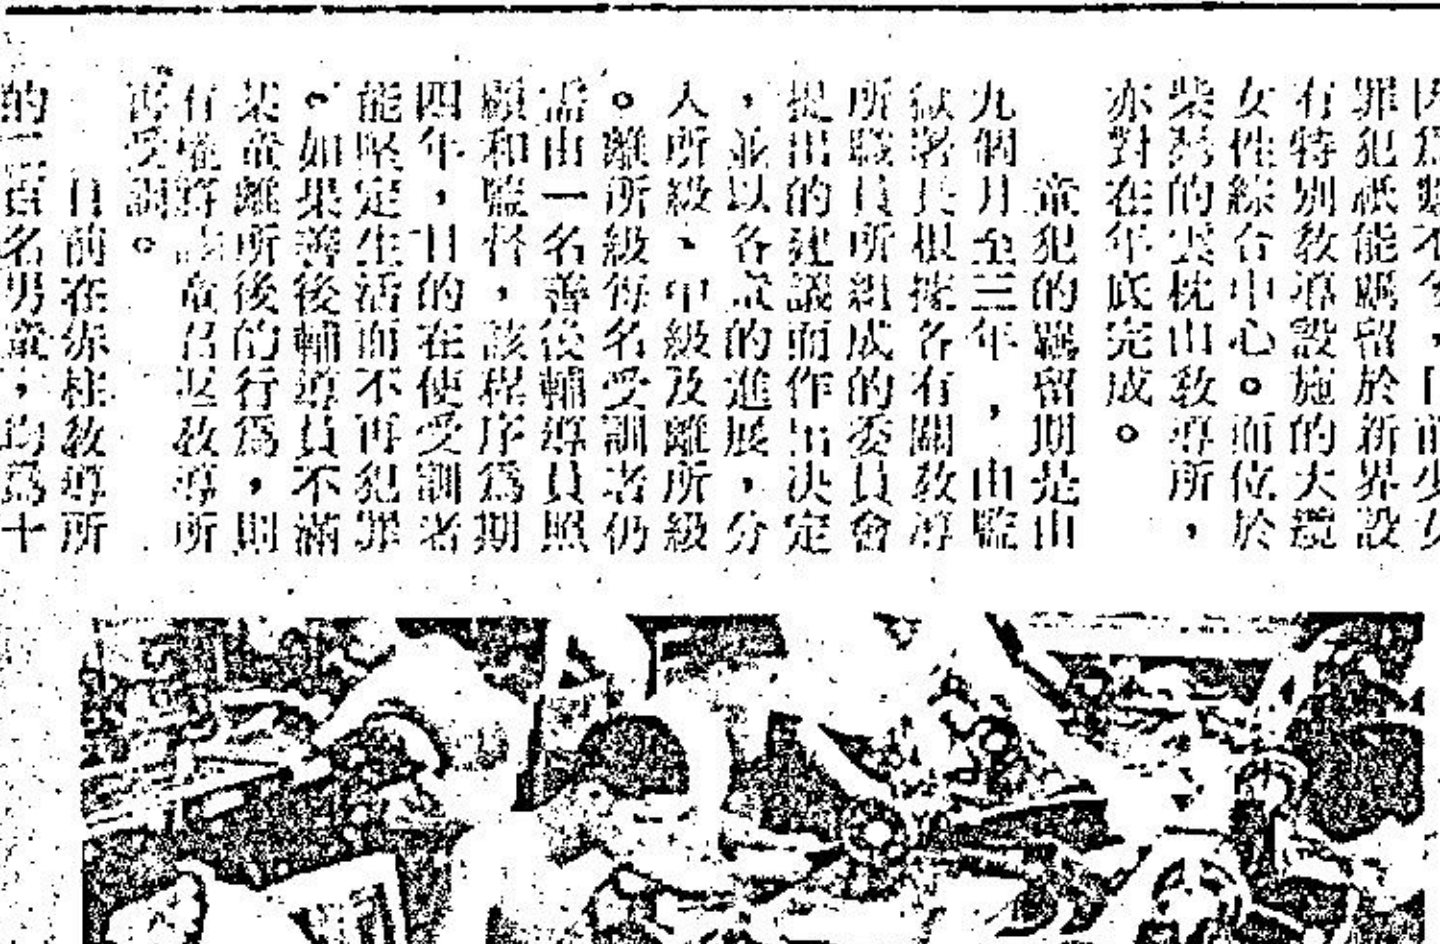 因為數不多，目前少女
罪犯祇能羈留於新界設
有特別教導設施的大欖
女性綜合中心。而位於
柴灣的雲枕山教導所，
亦對在年底完成。
童犯的羈留期是由
九個月至三年，由監
獄署長根據各有關教導
所職員所組成的委員會
提出的建議而作出決定
，並以各童的進展，分
入所級、中級及離所級
。離所級每名受訓者仍
需由一名善後輔導員照
顧和監督，該程序為期
四年，目的在使受訓者
能堅定生活而不再犯罪
。如果善後輔導員不滿
某童離所後的行為，則
有權將該童召返教導所
再受訓。
目前在赤柱教導所
的一百名男童，均為十